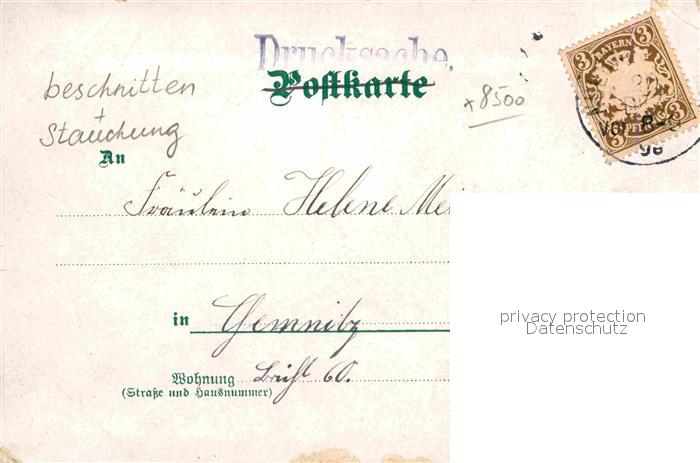 Drucksache.
Postkarte
beschnitten
+
Stauchung
x 8500
3 BAYERN 3
3 PFENNIG 3
VOR. 8-9
98
An
Fräulein Helene Mei
in Chemnitz
Wohnung 60.
(Straße und Hausnummer)
privacy protection
Datenschutz